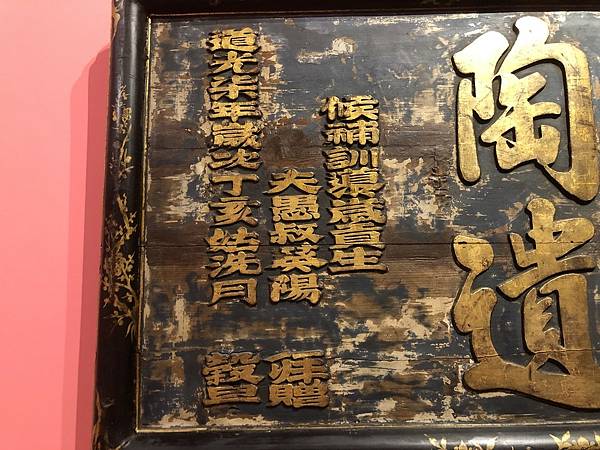 陶遺
候補訓導歲貢生
夫愚叔英陽 拜贈
道光柒年歲次丁亥姑洗月 穀旦